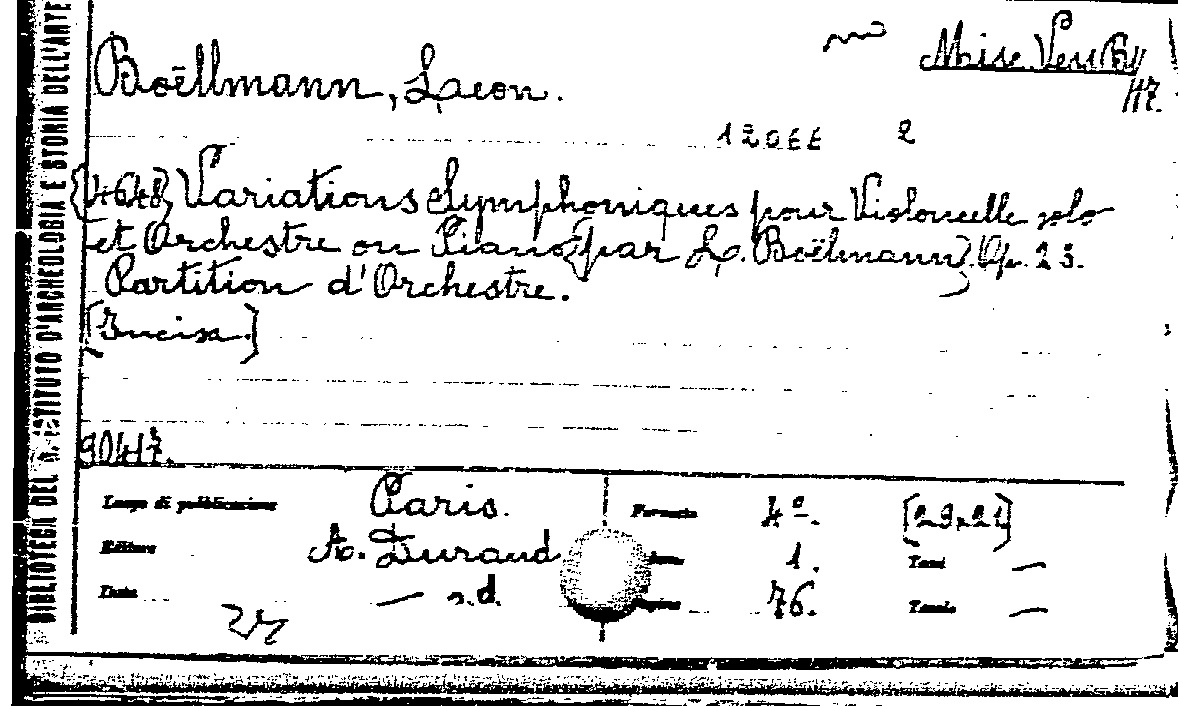 BIBLIOTECA DEL R. ISTITUTO D'ARCHEOLOGIA E STORIA DELL'ARTE
Misc. Ven By
47.
Boëllmann, Leon.
12066 2
[4648] Variations Symphoniques pour Violoncelle solo
et Orchestre ou Piano [par L. Boëlmann]. Op. 23.
Partition d'Orchestre.
[Incisa.]
90417.
Luogo di pubblicazione Paris. Formato 4º. [29x21]
Editore A. Durand 1. Tomi —
Data — s.d. Pagine 76. Tavole —